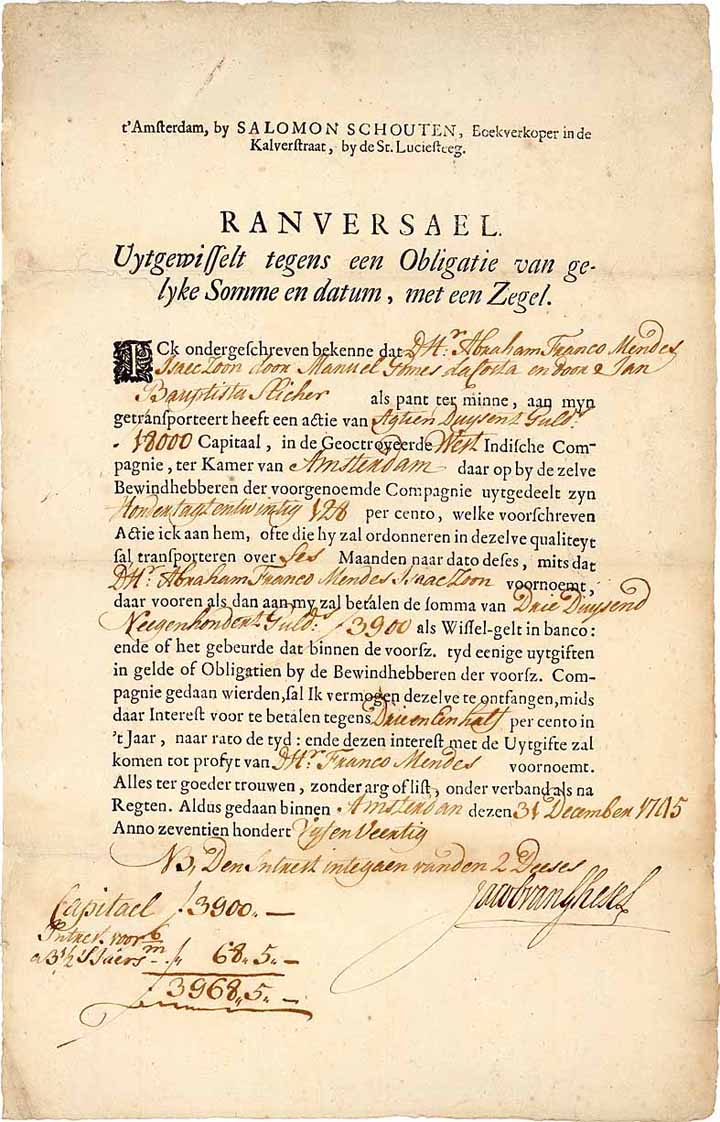 t'Amsterdam, by SALOMON SCHOUTEN, Boekverkoper in de
Kalverstraat, by de St. Luciesteeg.
RANVERSAEL.
Uytgewisselt tegens een Obligatie van ge-
lyke Somme en datum, met een Zegel.
ICk ondergeschreven bekenne dat D Hr. Abraham Franco Mendes
Isaac Zoon door Manuel Gomes dacosta en door Jan
Bauptista Slicher als pant ter minne, aan myn
getransporteert heeft een actie van Agtien Duysent Guld:s
18000 Capitaal, in de Geoctroyeerde West Indische Com-
pagnie, ter Kamer van Amsterdam daar op by de zelve
Bewindhebberen der voorgenoemde Compagnie uytgedeelt zyn
Hondertagtentwintig 128 per cento, welke voorschreven
Actie ick aan hem, ofte die hy zal ordonneren in dezelve qualiteyt
sal transporteren over Ses Maanden naar dato deses, mits dat
D Hr. Abraham Franco Mendes Isaac Zoon voornoemt,
daar vooren als dan aan my zal betalen de somma van Drie Duysend
Neegenhondert Guld:s ƒ3900 als Wissel-gelt in banco:
ende of het gebeurde dat binnen de voorsz. tyd eenige uytgiften
in gelde of Obligatien by de Bewindhebberen der voorsz. Com-
pagnie gedaan wierden, sal Ik vermogen dezelve te ontfangen, mids
daar Interest voor te betalen tegens Drie en Een half per cento in
't Jaar, naar rato de tyd: ende dezen interest met de Uytgifte zal
komen tot profyt van D Hr. Franco Mendes voornoemt.
Alles ter goeder trouwen, zonder arg of list, onder verband als na
Regten. Aldus gedaan binnen Amsterdam dezen 31 December 1745
Anno zeventien hondert Vyf en Veertig
NB, Den Intrest integaen vanden 2 Deeses
Capitael ƒ3900.,—
Intrest voor 6 m
a 3 1/2 'S Jaers ƒ 68,,5,,—
ƒ3968,,5,,—